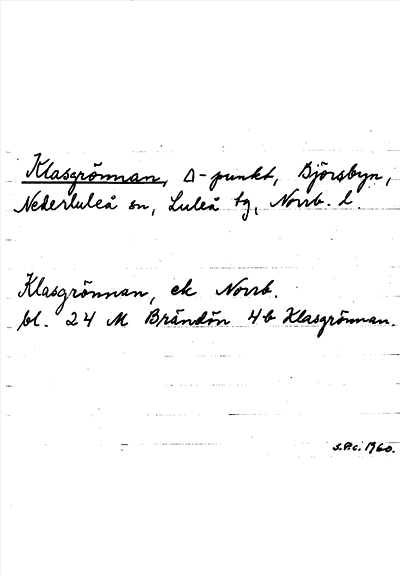 Klasgrönnan, Δ-punkt, Björsbyn,
Nederluleå sn, Luleå tg, Norrb. l.
Klasgrönnan, ek Norrb.
bl. 24 M Brändön 4b Klasgrönnan.
S.P.C. 1960.